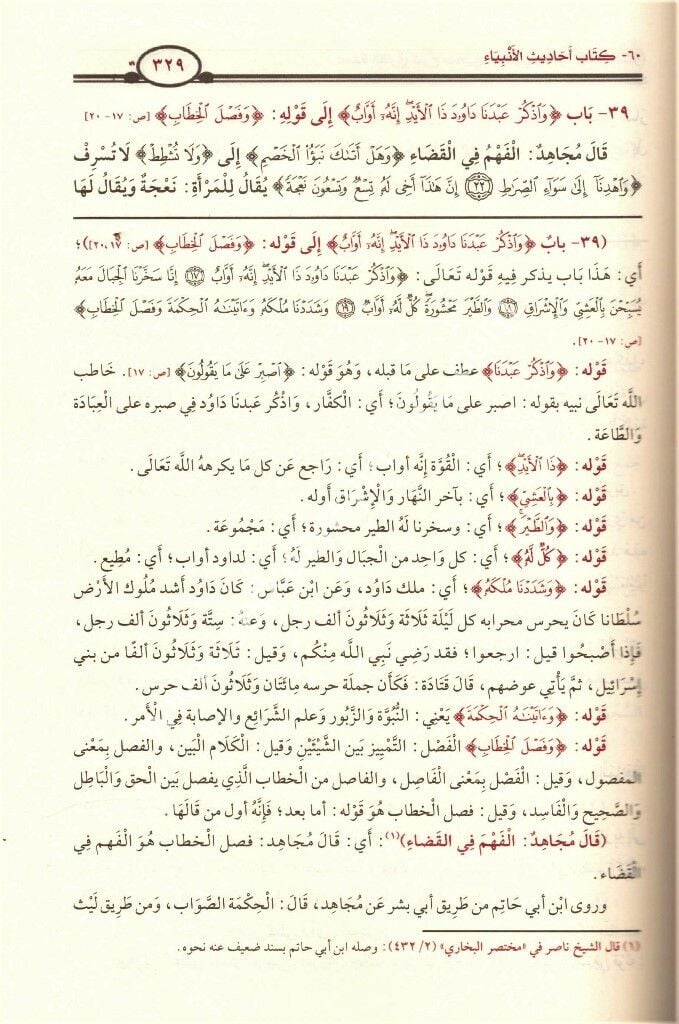 ٦٠- كِتَاب أَحَادِيثِ الأَنْبِيَاءِ
٣٢٩
٣٩- بَاب ﴿وَاذْكُرْ عَبْدَنَا دَاوُودَ ذَا الْأَيْدِ إِنَّهُ أَوَّابٌ﴾ إِلَى قَوْلِهِ: ﴿وَفَصْلَ الْخِطَابِ﴾ [ص: ١٧- ٢٠]
قَالَ مُجَاهِدٌ: الْفَهْمُ فِي الْقَضَاءِ ﴿وَهَلْ أَتَاكَ نَبَأُ الْخَصْمِ﴾ إِلَى ﴿وَلَا تُشْطِطْ﴾ لَا تُسْرِفْ
﴿وَاهْدِنَا إِلَى سَوَاءِ الصِّرَاطِ ۝٢٢ إِنَّ هَذَا أَخِي لَهُ تِسْعٌ وَتِسْعُونَ نَعْجَةً﴾ يُقَالُ لِلْمَرْأَةِ: نَعْجَةٌ وَيُقَالُ لَهَا
(٣٩- بابُ ﴿وَاذْكُرْ عَبْدَنَا دَاوُودَ ذَا الْأَيْدِ إِنَّهُ أَوَّابٌ﴾ إِلَى قَوْله: ﴿وَفَصْلَ الْخِطَابِ﴾ [ص: ١٧، ٢٠])؛
أَي: هَذَا بَاب يذكر فِيهِ قَوْله تَعَالَى: ﴿وَاذْكُرْ عَبْدَنَا دَاوُودَ ذَا الْأَيْدِ إِنَّهُ أَوَّابٌ ۝١٧ إِنَّا سَخَّرْنَا الْجِبَالَ مَعَهُ
يُسَبِّحْنَ بِالْعَشِيِّ وَالْإِشْرَاقِ ۝١٨ وَالطَّيْرَ مَحْشُورَةً كُلٌّ لَهُ أَوَّابٌ ۝١٩ وَشَدَدْنَا مُلْكَهُ وَآتَيْنَاهُ الْحِكْمَةَ وَفَصْلَ الْخِطَابِ﴾
[ص: ١٧- ٢٠].
قَوْله: ﴿وَاذْكُرْ عَبْدَنَا﴾ عطف على مَا قبله، وَهُوَ قَوْله: ﴿اصْبِرْ عَلَى مَا يَقُولُونَ﴾ [ص: ١٧]. خَاطب
اللَّه تَعَالَى نبيه بقوله: اصبر على مَا يَقُولُونَ؛ أَي: الْكفَّار، وَاذْكُر عَبدنَا دَاوُد فِي صبره على الْعِبَادَة
وَالطَّاعَة.
قَوْله: ﴿ذَا الْأَيْدِ﴾؛ أَي: الْقُوَّة إِنَّه أواب؛ أَي: رَاجع عَن كل مَا يكرههُ اللَّه تَعَالَى.
قَوْله: ﴿بِالْعَشِيِّ﴾؛ أَي: بآخر النَّهَار وَالْإِشْرَاق أَوله.
قَوْله: ﴿وَالطَّيْرَ﴾؛ أَي: وسخرنا لَهُ الطير محشورة؛ أَي: مَجْمُوعَة.
قَوْله: ﴿كُلٌّ لَهُ﴾؛ أَي: كل وَاحِد من الْجبَال وَالطير لَهُ؛ أَي: لداود أواب؛ أَي: مُطِيع.
قَوْله: ﴿وَشَدَدْنَا مُلْكَهُ﴾؛ أَي: ملك دَاوُد، وَعَن ابْن عَبَّاس: كَانَ دَاوُد أَشد مُلُوك الأَرْض
سُلْطَانا كَانَ يحرس محرابه كل لَيْلَة ثَلَاثَة وَثَلَاثُونَ ألف رجل، وَعنهُ: سِتَّة وَثَلَاثُونَ ألف رجل،
فَإِذا أَصْبحُوا قيل: ارجعوا؛ فقد رَضِي نَبِي اللَّه مِنْكُم، وَقيل: ثَلَاثَة وَثَلَاثُونَ ألفًا من بني
إِسْرَائِيل، ثمَّ يَأْتِي عوضهم، قَالَ قَتَادَة: فَكَأَن جملَة حرسه مِائَتَان وَثَلَاثُونَ ألف حرس.
قَوْله: ﴿وَآتَيْنَاهُ الْحِكْمَةَ﴾ يَعْنِي: النُّبُوَّة وَالزَّبُور وَعلم الشَّرَائِع والإصابة فِي الْأَمر.
قَوْله: ﴿وَفَصْلَ الْخِطَابِ﴾ الْفَصْل: التَّمْيِيز بَين الشَّيْئَيْنِ وَقيل: الْكَلَام الْبَين، والفصل بِمَعْنى
المفصول، وَقيل: الْفَصْل بِمَعْنى الْفَاصِل، والفاصل من الْخطاب الَّذِي يفصل بَين الْحق وَالْبَاطِل
وَالصَّحِيح وَالْفَاسِد، وَقيل: فصل الْخطاب هُوَ قَوْله: أما بعد؛ فَإِنَّهُ أول من قَالَهَا.
(قَالَ مُجَاهِدٌ: الْفَهْمَ فِي القَضاءِ)(١): أَي: قَالَ مُجَاهِد: فصل الْخطاب هُوَ الْفَهم فِي
الْقَضَاء.
وروى ابْن أبي حَاتِم من طَرِيق أبي بشر عَن مُجَاهِد، قَالَ: الْحِكْمَة الصَّوَاب، وَمن طَرِيق لَيْث
(١) قال الشيخ ناصر في «مختصر البخاري» (٢/ ٤٣٢): وصله ابن أبي حاتم بسند ضعيف عنه نحوه.